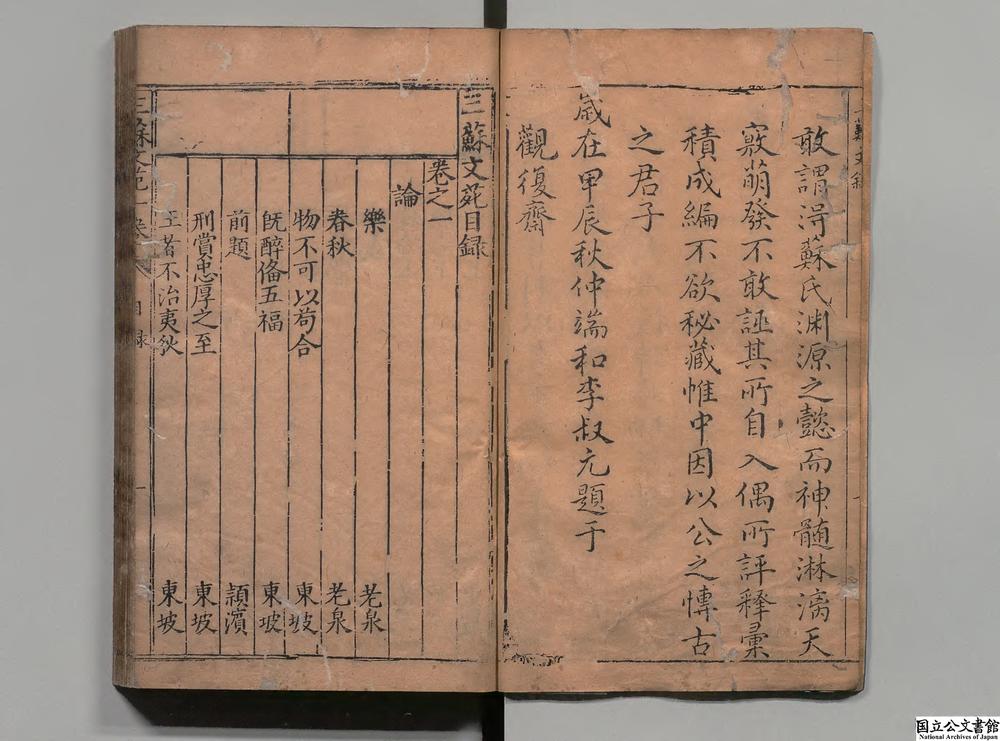 敢謂得蘇氏渊源之懿而神髄淋漓天
竅萌發不敢誣其所自入偶所評釋彙
積成編不欲秘藏帷中因以公之博古
之君子
歳在甲辰秋仲端和李叔元題于
觀復齋
三蘇文苑目録
卷之一
論
樂 老泉
春秋 老泉
物不可以苟合 東坡
既醉俻五福 東坡
前題 頴濱
刑賞忠厚之至 東坡
王者不治夷狄 東坡
三蘇文苑 目録 一
国立公文書館
National Archives of Japan